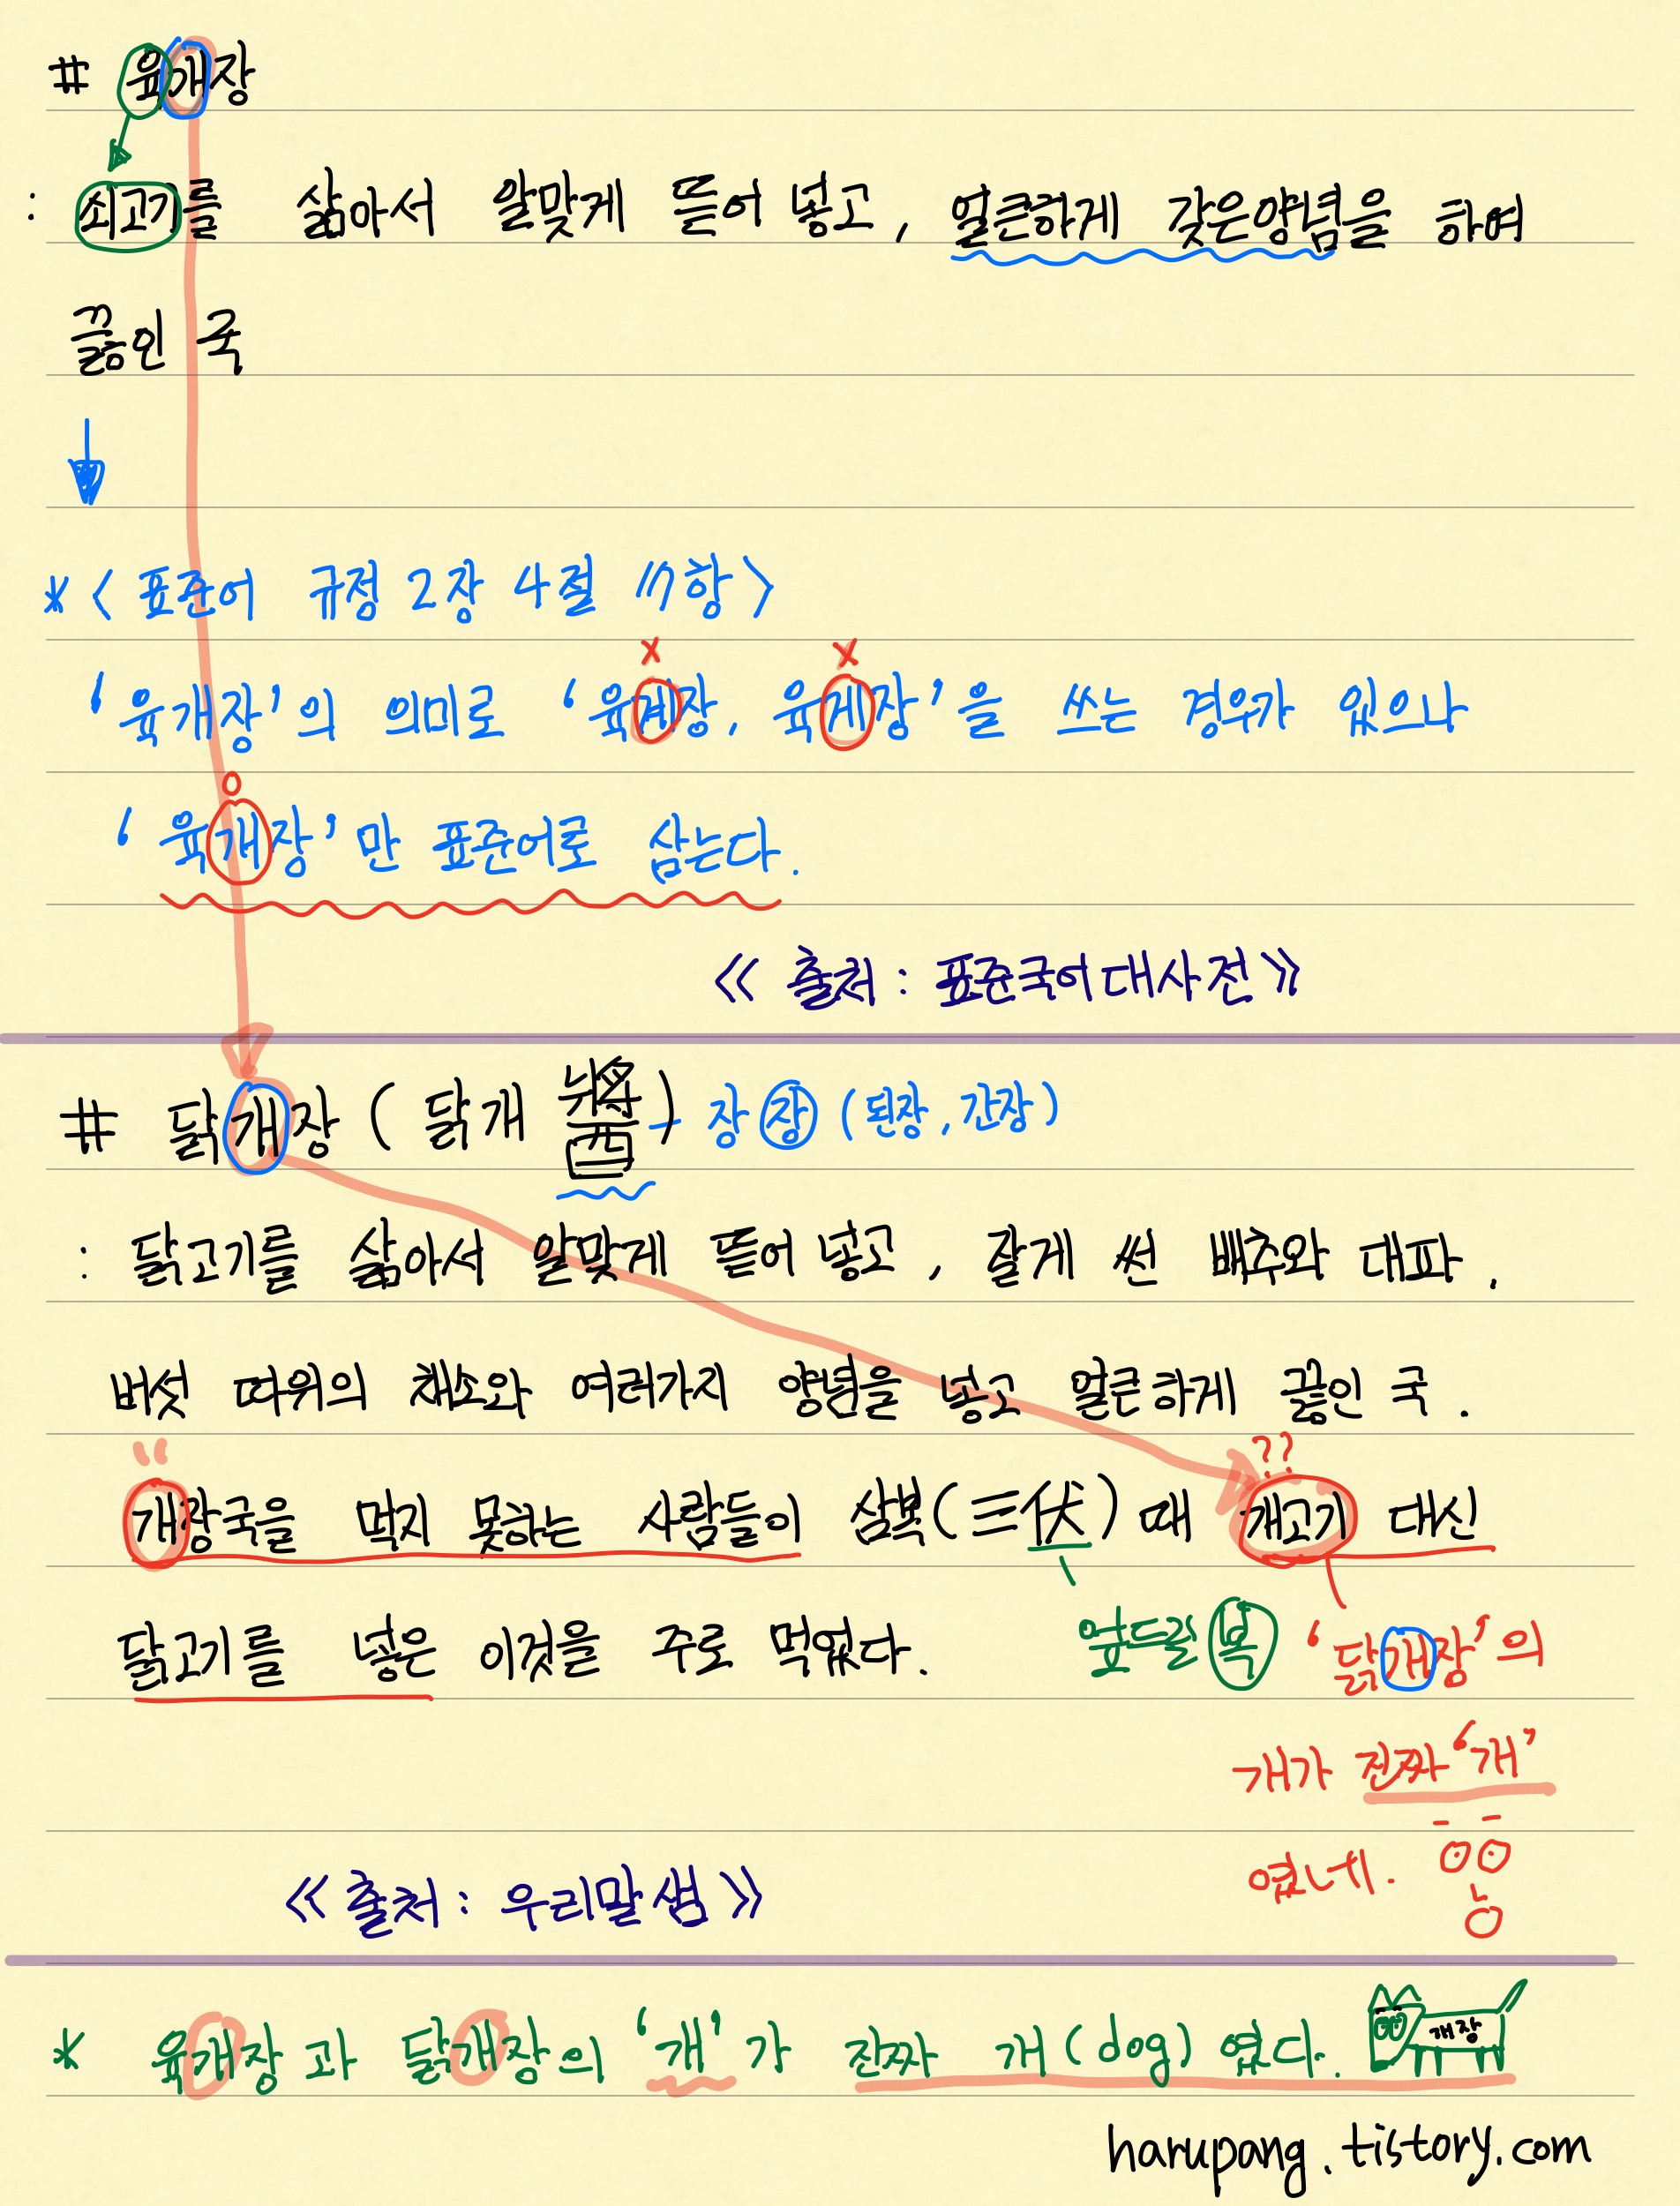 # 육개장
: 쇠고기를 삶아서 알맞게 뜯어 넣고, 얼큰하게 갖은양념을 하여
끓인 국
* < 표준어 규정 2장 4절 17항 >
'육개장'의 의미로 '육계장, 육게장'을 쓰는 경우가 있으나
'육개장'만 표준어로 삼는다.
《 출처 : 표준국어대사전 》
# 닭개장 ( 닭개 醬 ) 장 장 (된장, 간장)
: 닭고기를 삶아서 알맞게 뜯어 넣고, 잘게 썬 배추와 대파,
버섯 따위의 채소와 여러가지 양념을 넣고 얼큰하게 끓인 국.
??
개장국을 먹지 못하는 사람들이 삼복(三伏) 때 개고기 대신
닭고기를 넣은 이것을 주로 먹었다. 엎드릴 복 '닭개장'의
개가 진짜 '개'
였네.
《 출처 : 우리말샘 》
* 육개장과 닭개장의 '개'가 진짜 개(dog) 였다. 개장
harupang.tistory.com